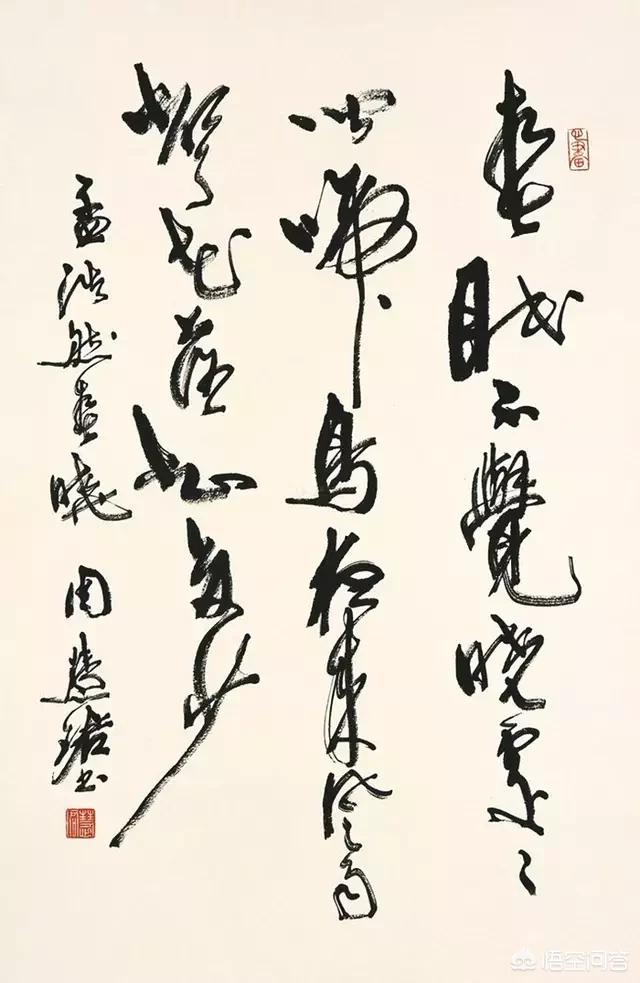 春眠不覺曉處〻
聞啼鳥夜來風雨
聲花落知多少
孟浩然春曉 周慧珺書
悟空问答